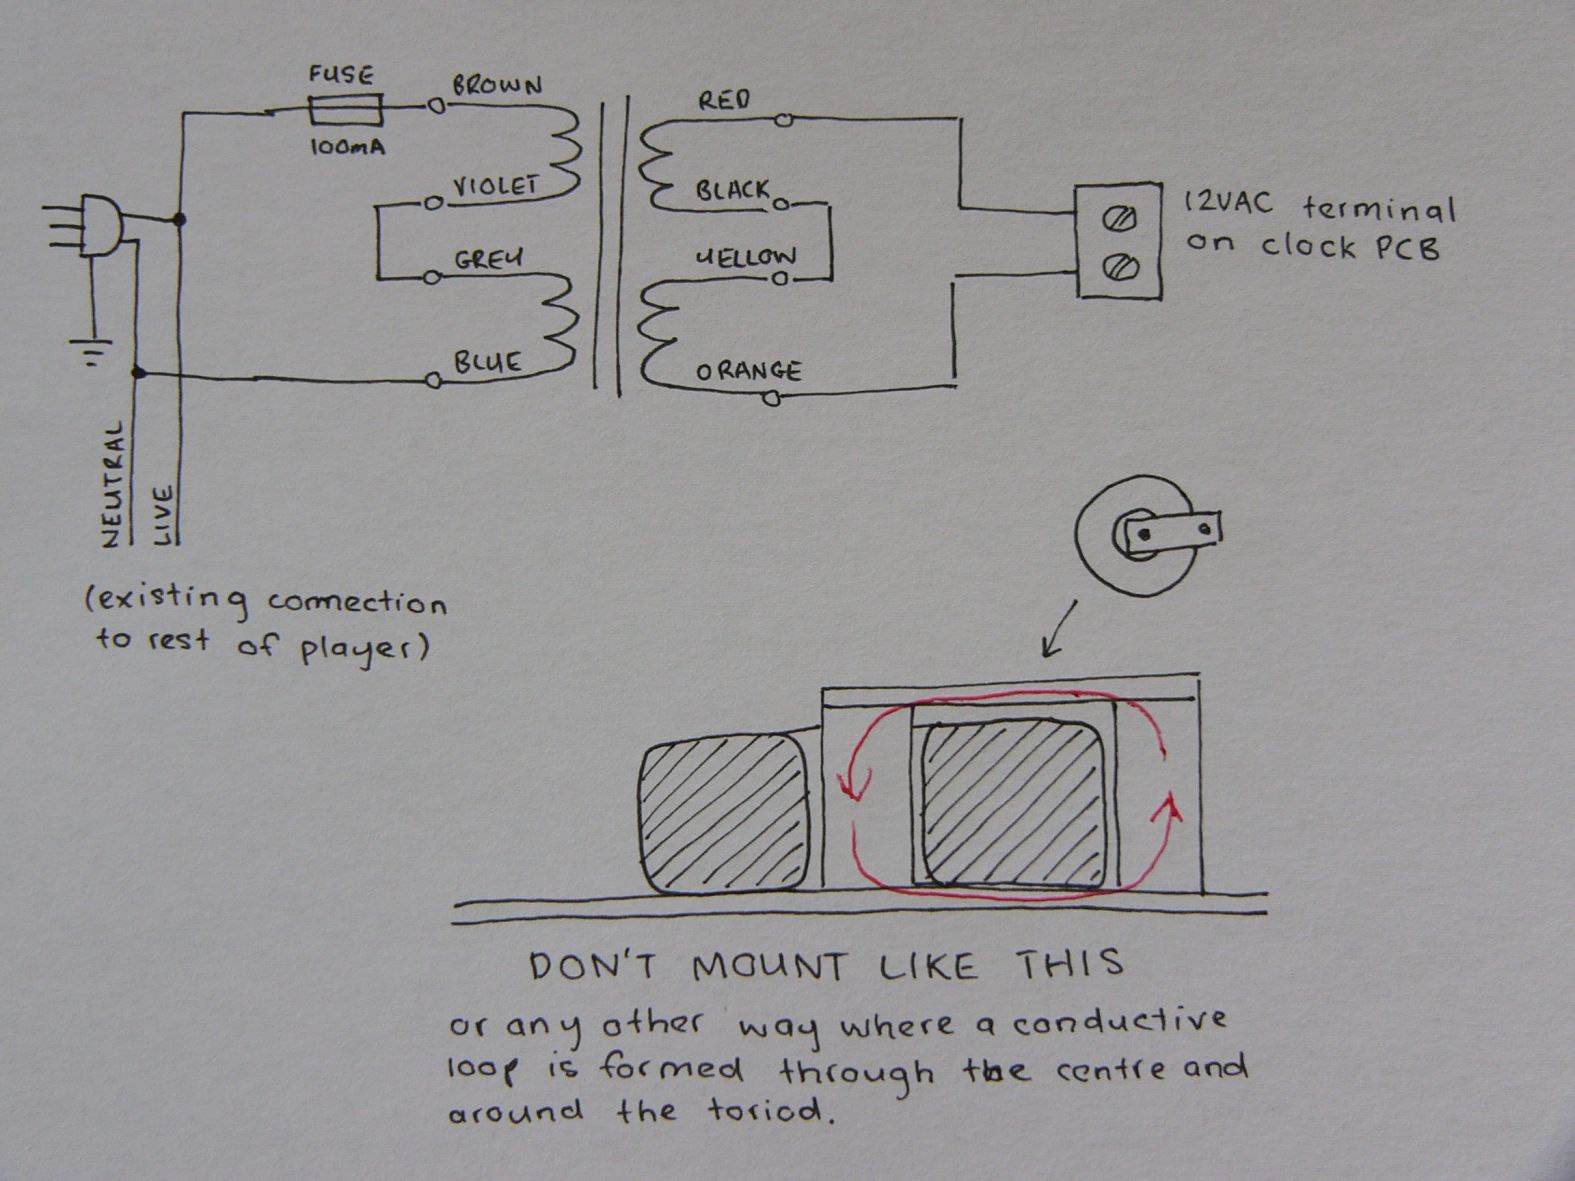 FUSE
100mA
BROWN
VIOLET
GREY
BLUE
RED
BLACK
YELLOW
ORANGE
12VAC terminal
on clock PCB
NEUTRAL
LIVE
(existing connection
to rest of player)
DON'T MOUNT LIKE THIS
or any other way where a conductive
loop is formed through the centre and
around the toriod.